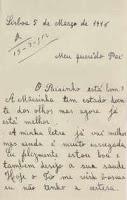 Lisboa 5 de Março de 1916
Meu querido Pai
O Paisinho está bom?
A Mãesinha tem estado doente
dos olhos mas agora já
está melhor.
A minha letra já vai melhor
mas ainda é muito
Eu felizmente estou boa e
tambem desejo a sua saude
Hoje o Tio me
eu não tenho a certeza.